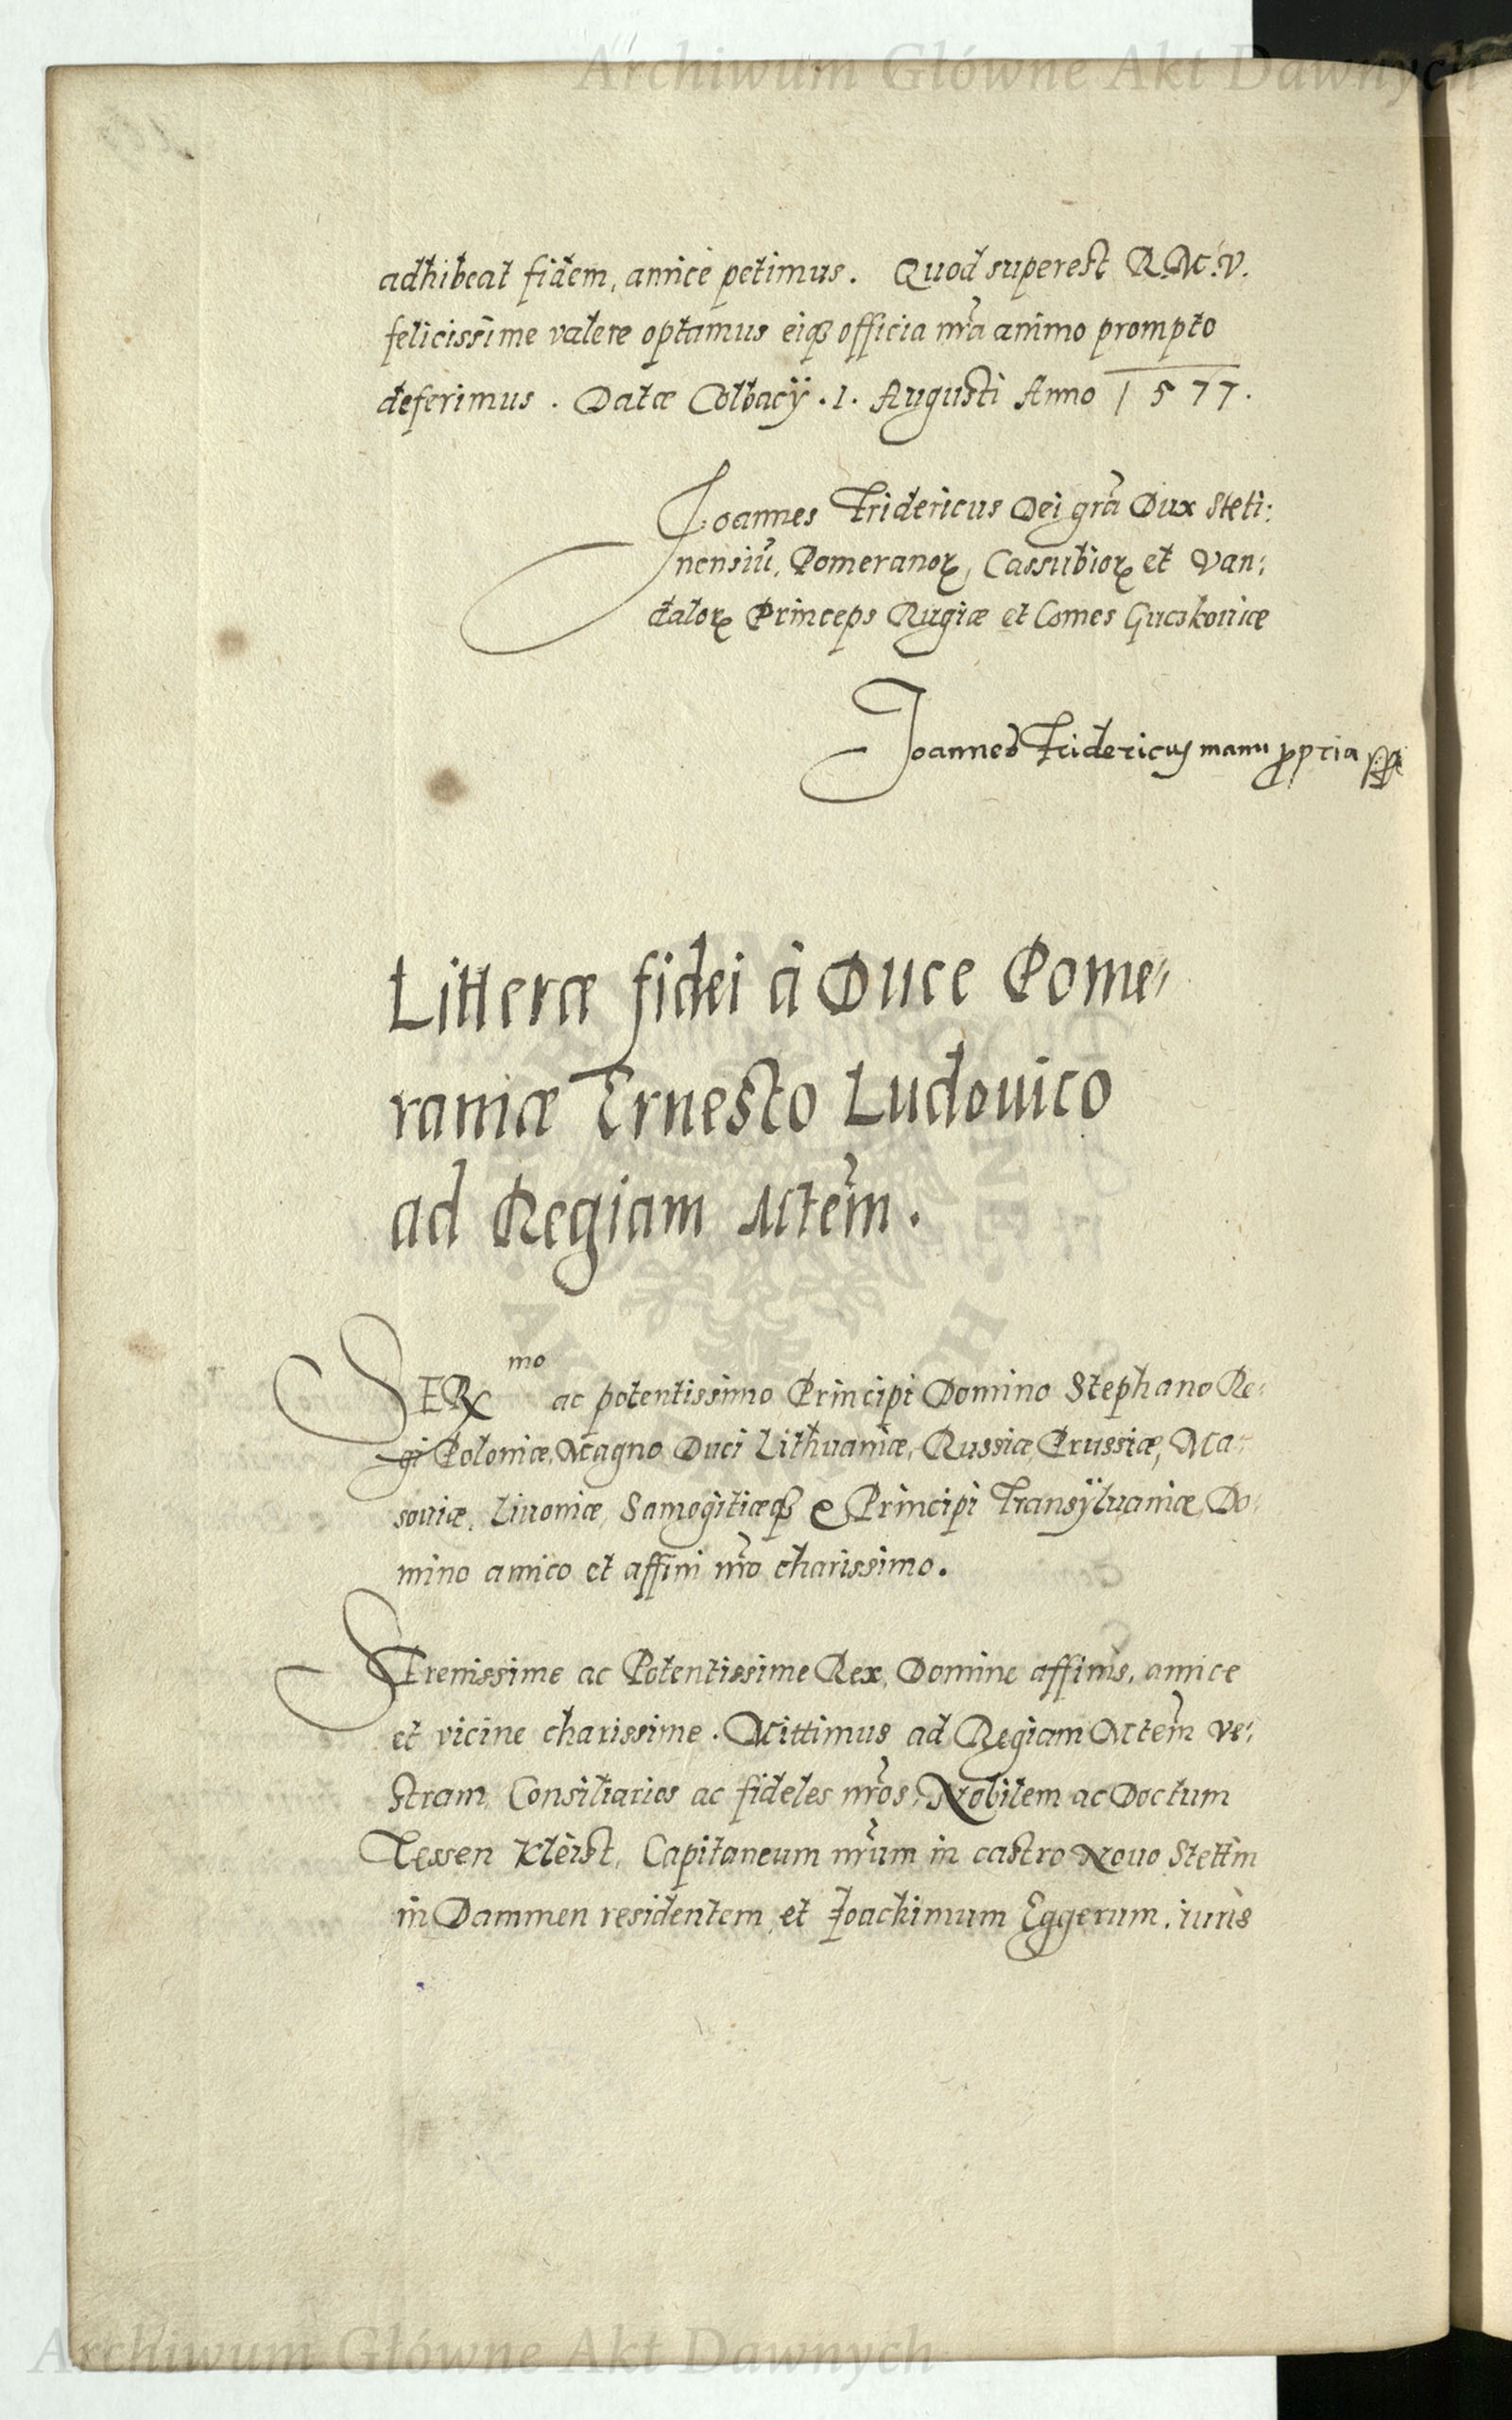 Archiwum Główne Akt Dawnych
adhibeat fidem, amice petimus. Quod superest R. M. V.
felicissime valere optamus eiqꝫ officia nr̃a animo prompto
deferimus. Datæ Colbacÿ .1. Augusti Anno 1577.
Joannes Fridericus Dei grã Dux Steti:
nensiũ, Pomeranoꝝ, Cassubioꝝ et Van:
daloꝝ Princeps Rugiæ et Comes Gucskouiæ
Joannes Fridericus manu ꝓpria
Litteræ fidei à Duce Pome:
raniæ Ernesto Ludouico
ad Regiam Mtem̃.
SERmo ac potentissimo Principi Domino Stephano Re:
gi Poloniæ, Magno Duci Lithuaniæ, Russiæ, Prussiæ, Ma:
souiæ, Liuoniæ, Samogitiæqꝫ & Principi Transÿluaniæ, Do:
mino amico et affini nr̃o charissimo.
Serenissime ac Potentissime Rex, Domine affinis, amice
et vicine charissime. Mittimus ad Regiam Mtem̃ ve:
stram Consiliarios ac fideles nr̃os, Nobilem ac Doctum
Tessen Kleist, Capitaneum nr̃um in castro Nouo Stettin
in Dammen residentem, et Joachimum Eggerum, iuris
Archiwum Główne Akt Dawnych